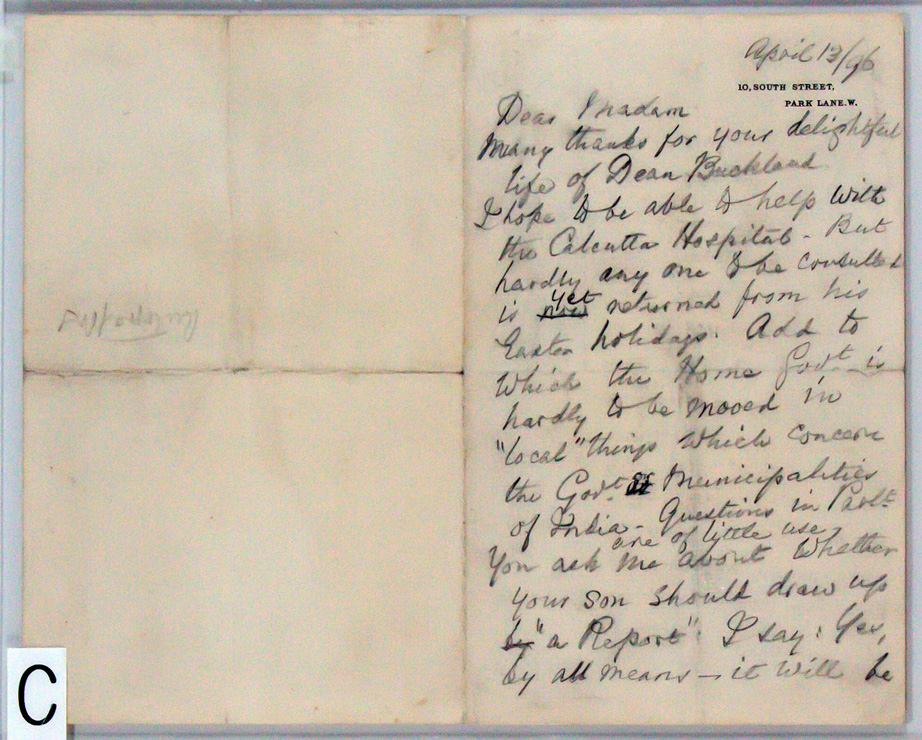 April 13/96
10, SOUTH STREET,
PARK LANE. W.
Dear Madam
Many thanks for your delightful
life of Dean Buckland
I hope to be able to help with
the Calcutta Hospital - But
hardly any one to be consulted
is now yet returned from his
Easter holidays. Add to
which the Home Govt. is
hardly to be moved in
"local" things which concern
the Govt. Municipalities
of India - Questions in Parlt.
are of little use
You ask me about whether
your son should draw up
by "a Report". I say: Yes,
by all means - it will be
C